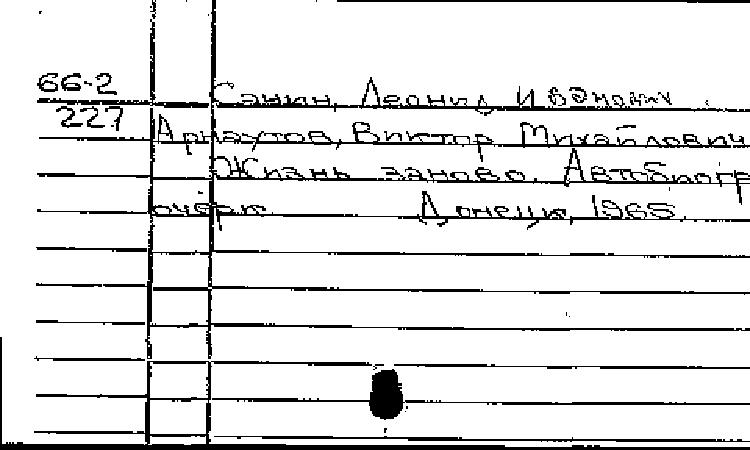 66-2 Санин, Леонид Иванович.
227 Арнаутов, Виктор Михайлович
Жизнь заново. Автобиогр
очерк Донецк, 1965.